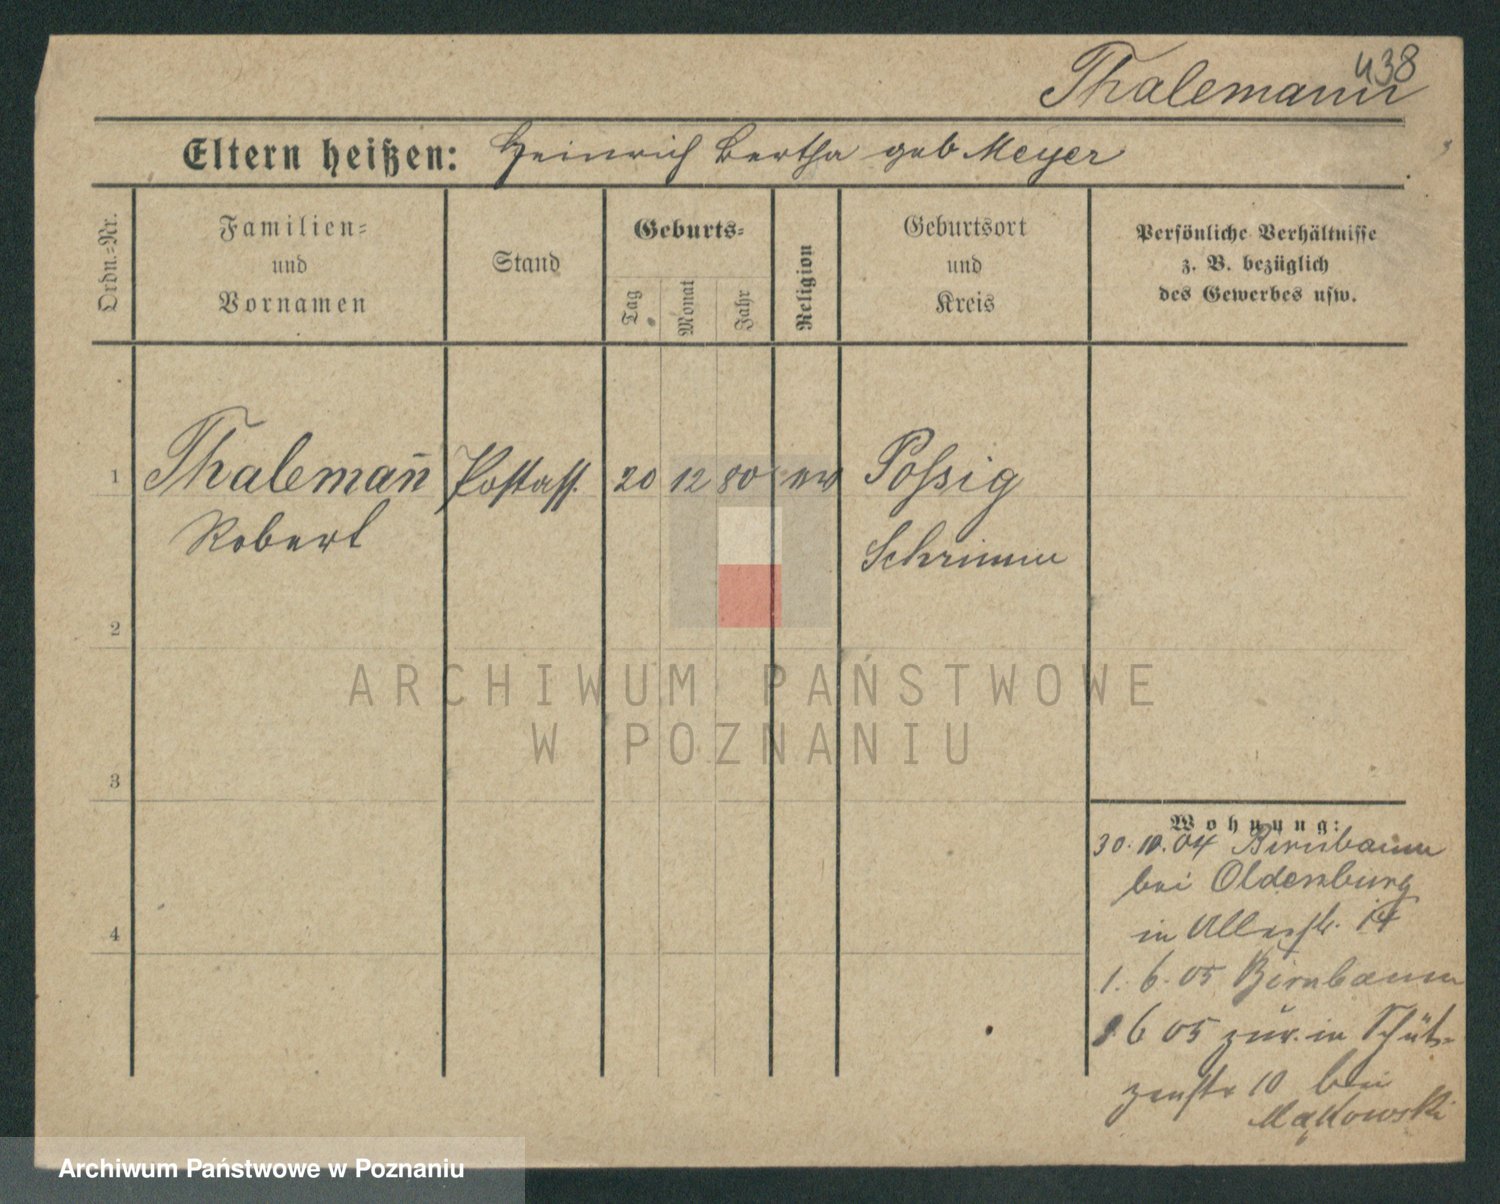 438
Thalemann
Eltern heißen: Heinrich Bertha geb Meyer
Ordn.=Nr.
Familien=
und
Vornamen
Stand
Geburts=
Tag
Monat
Jahr
Religion
Geburtsort
und
Kreis
Persönliche Verhältnisse
z. B. bezüglich
des Gewerbes usw.
1 Thalemañ Postass. 20 12 80 ev Possig
Robert Schrimm
2
3
4
Wohnung:
30.10.04 Birnbaum
bei Oldenburg
in 14
1. 6. 05 Birnbaum
6 05 zur. in Schüt-
zenstr 10 bei
Mąkowski
ARCHIWUM PAŃSTWOWE
W POZNANIU
Archiwum Państwowe w Poznaniu